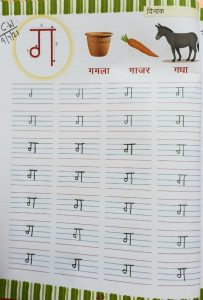 C.W दिनांक
9/7/21
ग
गमला गाजर गधा
ग ग ग ग
ग ग ग ग
ग ग ग ग
ग ग ग ग
ग ग ग ग
ग ग ग ग
ग ग ग ग